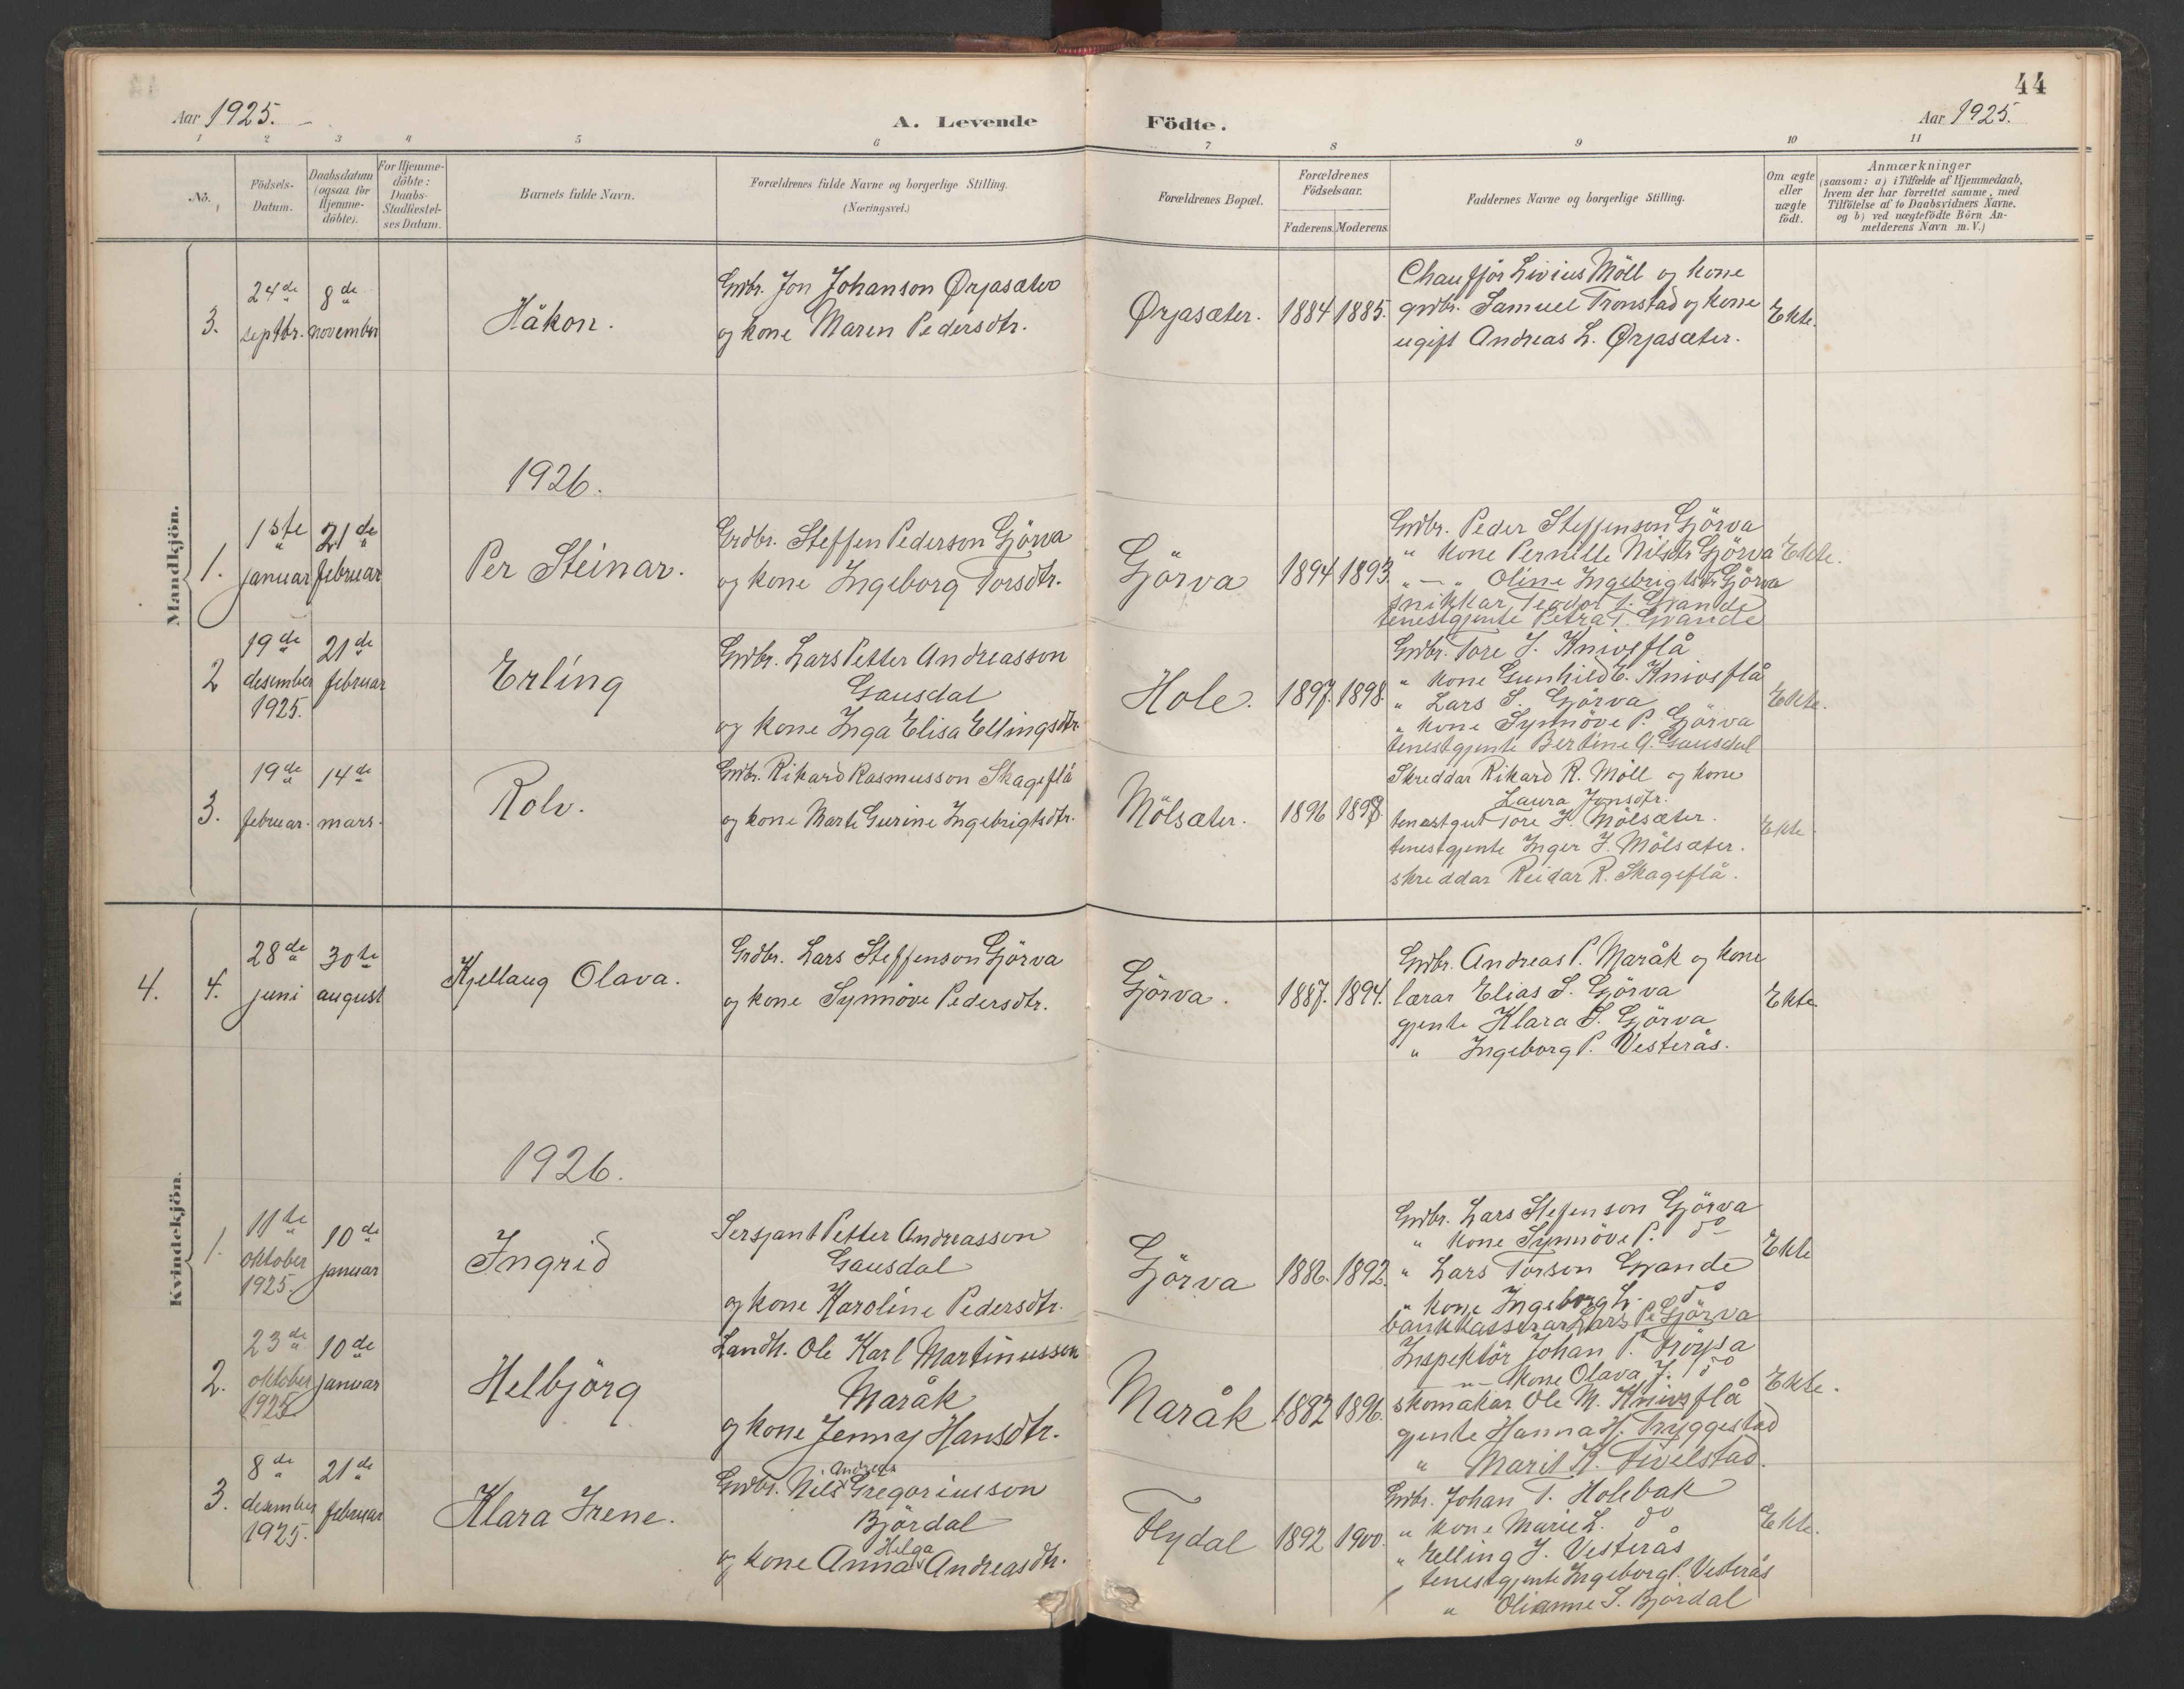 44
Aar 1925.
A. Levende Födte.
Aar 1925.
1 2 3 4 5 6 7 8 9 10 11
No.
Födsels-
Datum.
Daabsdatum
(ogsaa for
Hjemme-
döbte).
For Hjemme-
döbte:
Daabs-
Stadfæstel-
ses Datum.
Barnets fulde Navn.
Forældrenes fulde Navne og borgerlige Stilling.
(Næringsvei.)
Forældrenes Bopæl.
Forældrenes
Födselsaar.
Faderens. Moderens.
Faddernes Navne og borgerlige Stilling.
Om ægte
eller
uægte
födt.
Anmærkninger
(saasom: a) i Tilfælde af Hjemmedaab,
hvem der har forrettet samme, med
Tilföielse af to Daabsvidners Navne.
og b) ved uægtefödte Börn An-
melderens Navn m. V.)
Mandkjön.
3.
24de
septbr.
8de
november
Håkon.
Grdbr. Jon Johanson Ørjasæter
og kone Maren Pedersdtr.
Ørjasæter.
1884 1885.
Chauffjör Livius Möll og kone
grdbr. Samuel Tronstad og kone
ugift Andreas L. Ørjasæter.
Ekte.
1926.
1.
1ste
januar
21de
februar
Per Steinar.
Grdbr. Steffen Pederson Gjörva
og kone Ingeborg Torsdtr.
Gjörva
1894 1893.
Grdbr. Peder Steffenson Gjörva
" kone Pernille Nilsdtr. Gjörva
" — " Oline Ingebrigtsdtr. Gjörva
snikkar Teodor T. Grande
tenestgjente Petra T. Grande
Ekte.
2
19de
desember
1925.
21de
februar
Erling
Grdbr. Lars Petter Andreasson
Gausdal
og kone Inga Elisa Ellingsdtr.
Hole.
1897. 1898.
Grdbr. Tore J. Knivsflå
" kone Gunhild E. Knivsflå
" Lars S. Gjörva
" kone Synnöve P. Gjörva
tenestgjente Bertine A. Gausdal
Ekte.
3.
19de
februar.
14de
mars.
Rolv.
Grdbr. Rikard Rasmusson Skageflå
og kone Marte Gurine Ingebrigtsdtr.
Mölsæter.
1896 1898.
Skreddar Rikard R. Möll og kone
Laura Jonsdtr.
tenestgut Tore J. Mölsæter.
tenestgjente Inger J. Mölsæter.
skreddar Reidar R. Skageflå.
Ekte.
Kvindekjön.
4.
4.
28de
juni
30te
august
Kjellaug Olava.
Grdbr. Lars Steffenson Gjörva
og kone Synnöve Pedersdtr.
Gjörva.
1887. 1894.
Grdbr. Andreas P. Maråk og kone
lærar Elias S. Gjörva
gjente Klara S. Gjörva
" Ingeborg P. Vesterås.
Ekte.
1926.
1.
11te
oktober
1925.
10de
januar
Ingrid
Sersjant Petter Andreasson
Gausdal
og kone Karoline Pedersdtr.
Gjörva
1886. 1892.
Grdbr. Lars Stefenson Gjörva
" kone Synnöve P. do
" Lars Torson Grande
" kone Ingeborg L. do
bankkasserar Lars P. Gjörva
Ekte
2.
23de
oktober
1925.
10de
januar
Helbjörg
Landh. Ole Karl Martinusson
Maråk
og kone Jenny Hansdtr.
Maråk
1882 1896.
Inspektör Johan P. Fröysa
— " — kone Olava J. do
skomakar Ole M. Knivsflå
gjente Hanna H. Tryggestad
" Marit K. Fivelstad.
Ekte.
3.
8de
desember
1925.
21de
februar
Klara Irene.
Andreas
Grdbr. Nils Gregoriusson
Björdal
Helga
og kone Anna Andreasdtr.
Flydal
1892 1900.
Grdbr. Johan T. Holebak
" kone Marie L. do
" Elling J. Vesterås
tenestgjente Ingeborg P. Vesterås
" Olianne S. Björdal
Ekte.